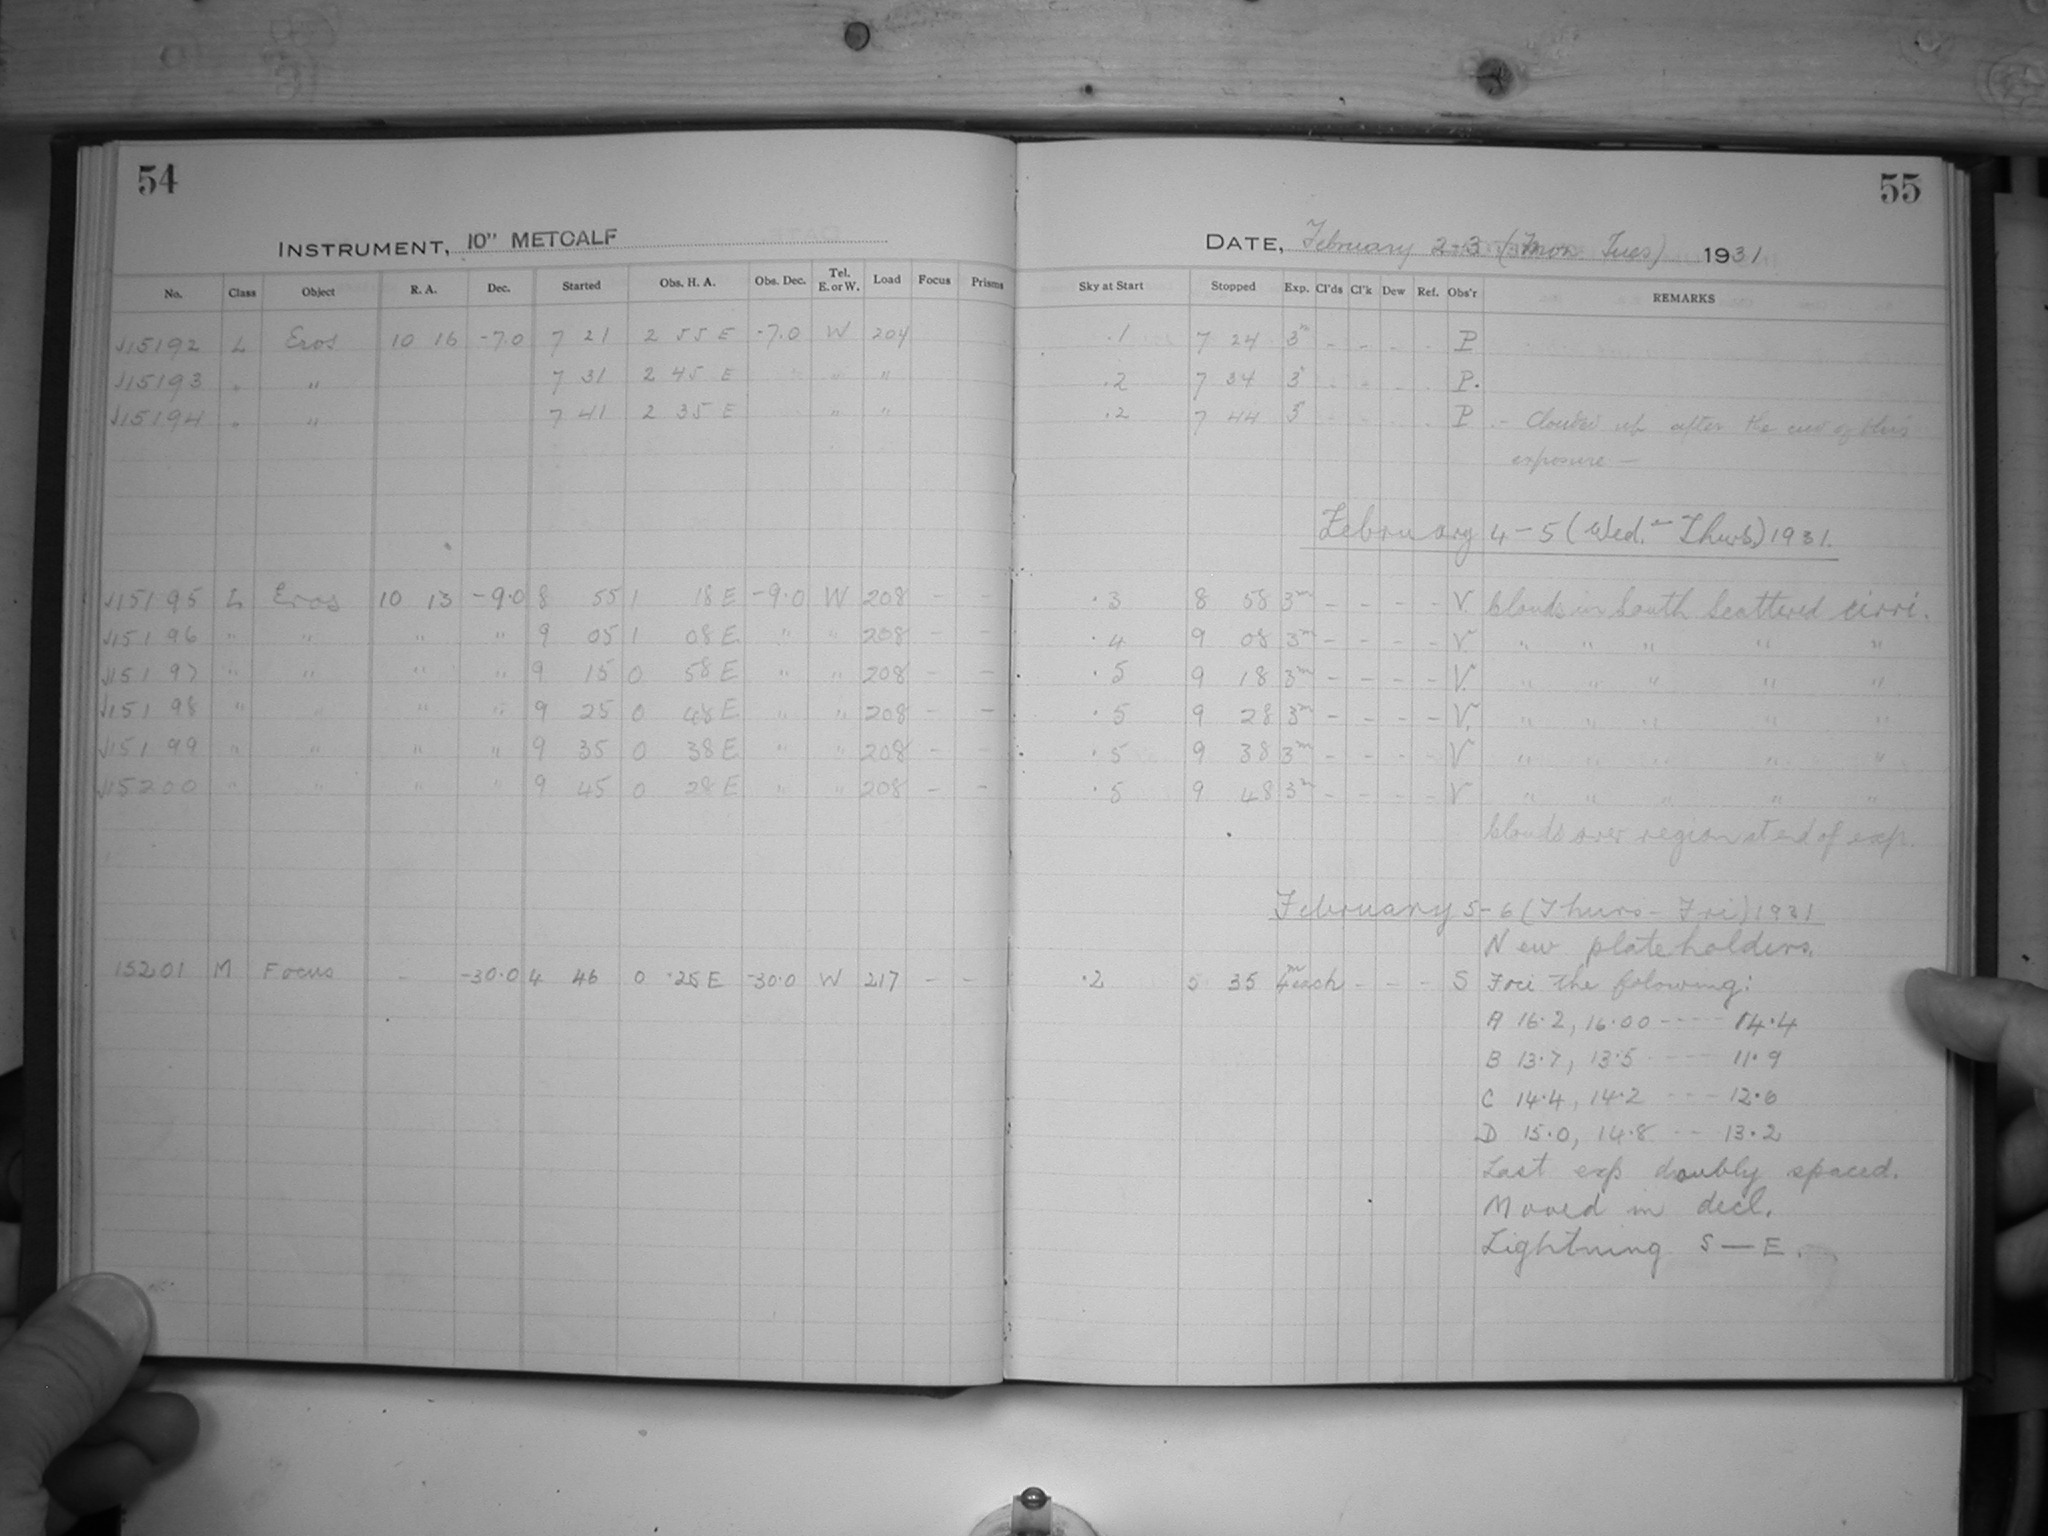 54
INSTRUMENT, 10" METCALF
No. Class Object R. A. Dec. Started Obs. H. A. Obs. Dec. Tel. E. or W. Load Focus Prisms
15192 L Eros 10 16 -7.0 7 21 2 55 E -7.0 W 204
15193 " " 7 31 2 45 E " "
15194 " " 7 41 2 35 E " "
15195 L Eros 10 13 -9.0 8 55 1 18 E -9.0 W 208 - -
15196 " " " " 9 05 1 08 E " " 208 - -
15197 " " " " 9 15 0 58 E " " 208 - -
15198 " " " " 9 25 0 48 E " " 208 - -
15199 " " " " 9 35 0 38 E " " 208 - -
15200 " " " " 9 45 0 28 E " " 208 - -
15201 M Focus - -30.0 4 46 0 25 E -30.0 W 217 - -
55
DATE, February 2-3 (Mon Tues) 1931
Sky at Start Stopped Exp. Cl'ds Cl'k Dew Ref. Obs'r REMARKS
.1 7 24 3m - - - - P
.2 7 34 3 - - - - P.
.2 7 44 3 - - - - P - Clouded up after the end of this
exposure -
February 4-5 (Wed.-Thurs) 1931.
.3 8 58 3m - - - - V. Clouds in South Scattered cirri.
.4 9 08 3m - - - - V " " " " "
.5 9 18 3m - - - - V. " " " " "
.5 9 28 3m - - - - V. " " " " "
.5 9 38 3m - - - - V " " " " "
.5 9 48 3m - - - - V " " " " "
Clouds over region at end of exp.
February 5-6 (Thurs-Fri) 1931
New plateholders.
.2 5 35 4m each - - - S Foci the folowing:
A 16.2, 16.00 ---- 14.4
B 13.7, 13.5 ---- 11.9
C 14.4, 14.2 --- 12.6
D 15.0, 14.8 -- 13.2
Last exp doubly spaced.
Moved in decl.
Lightning S—E.